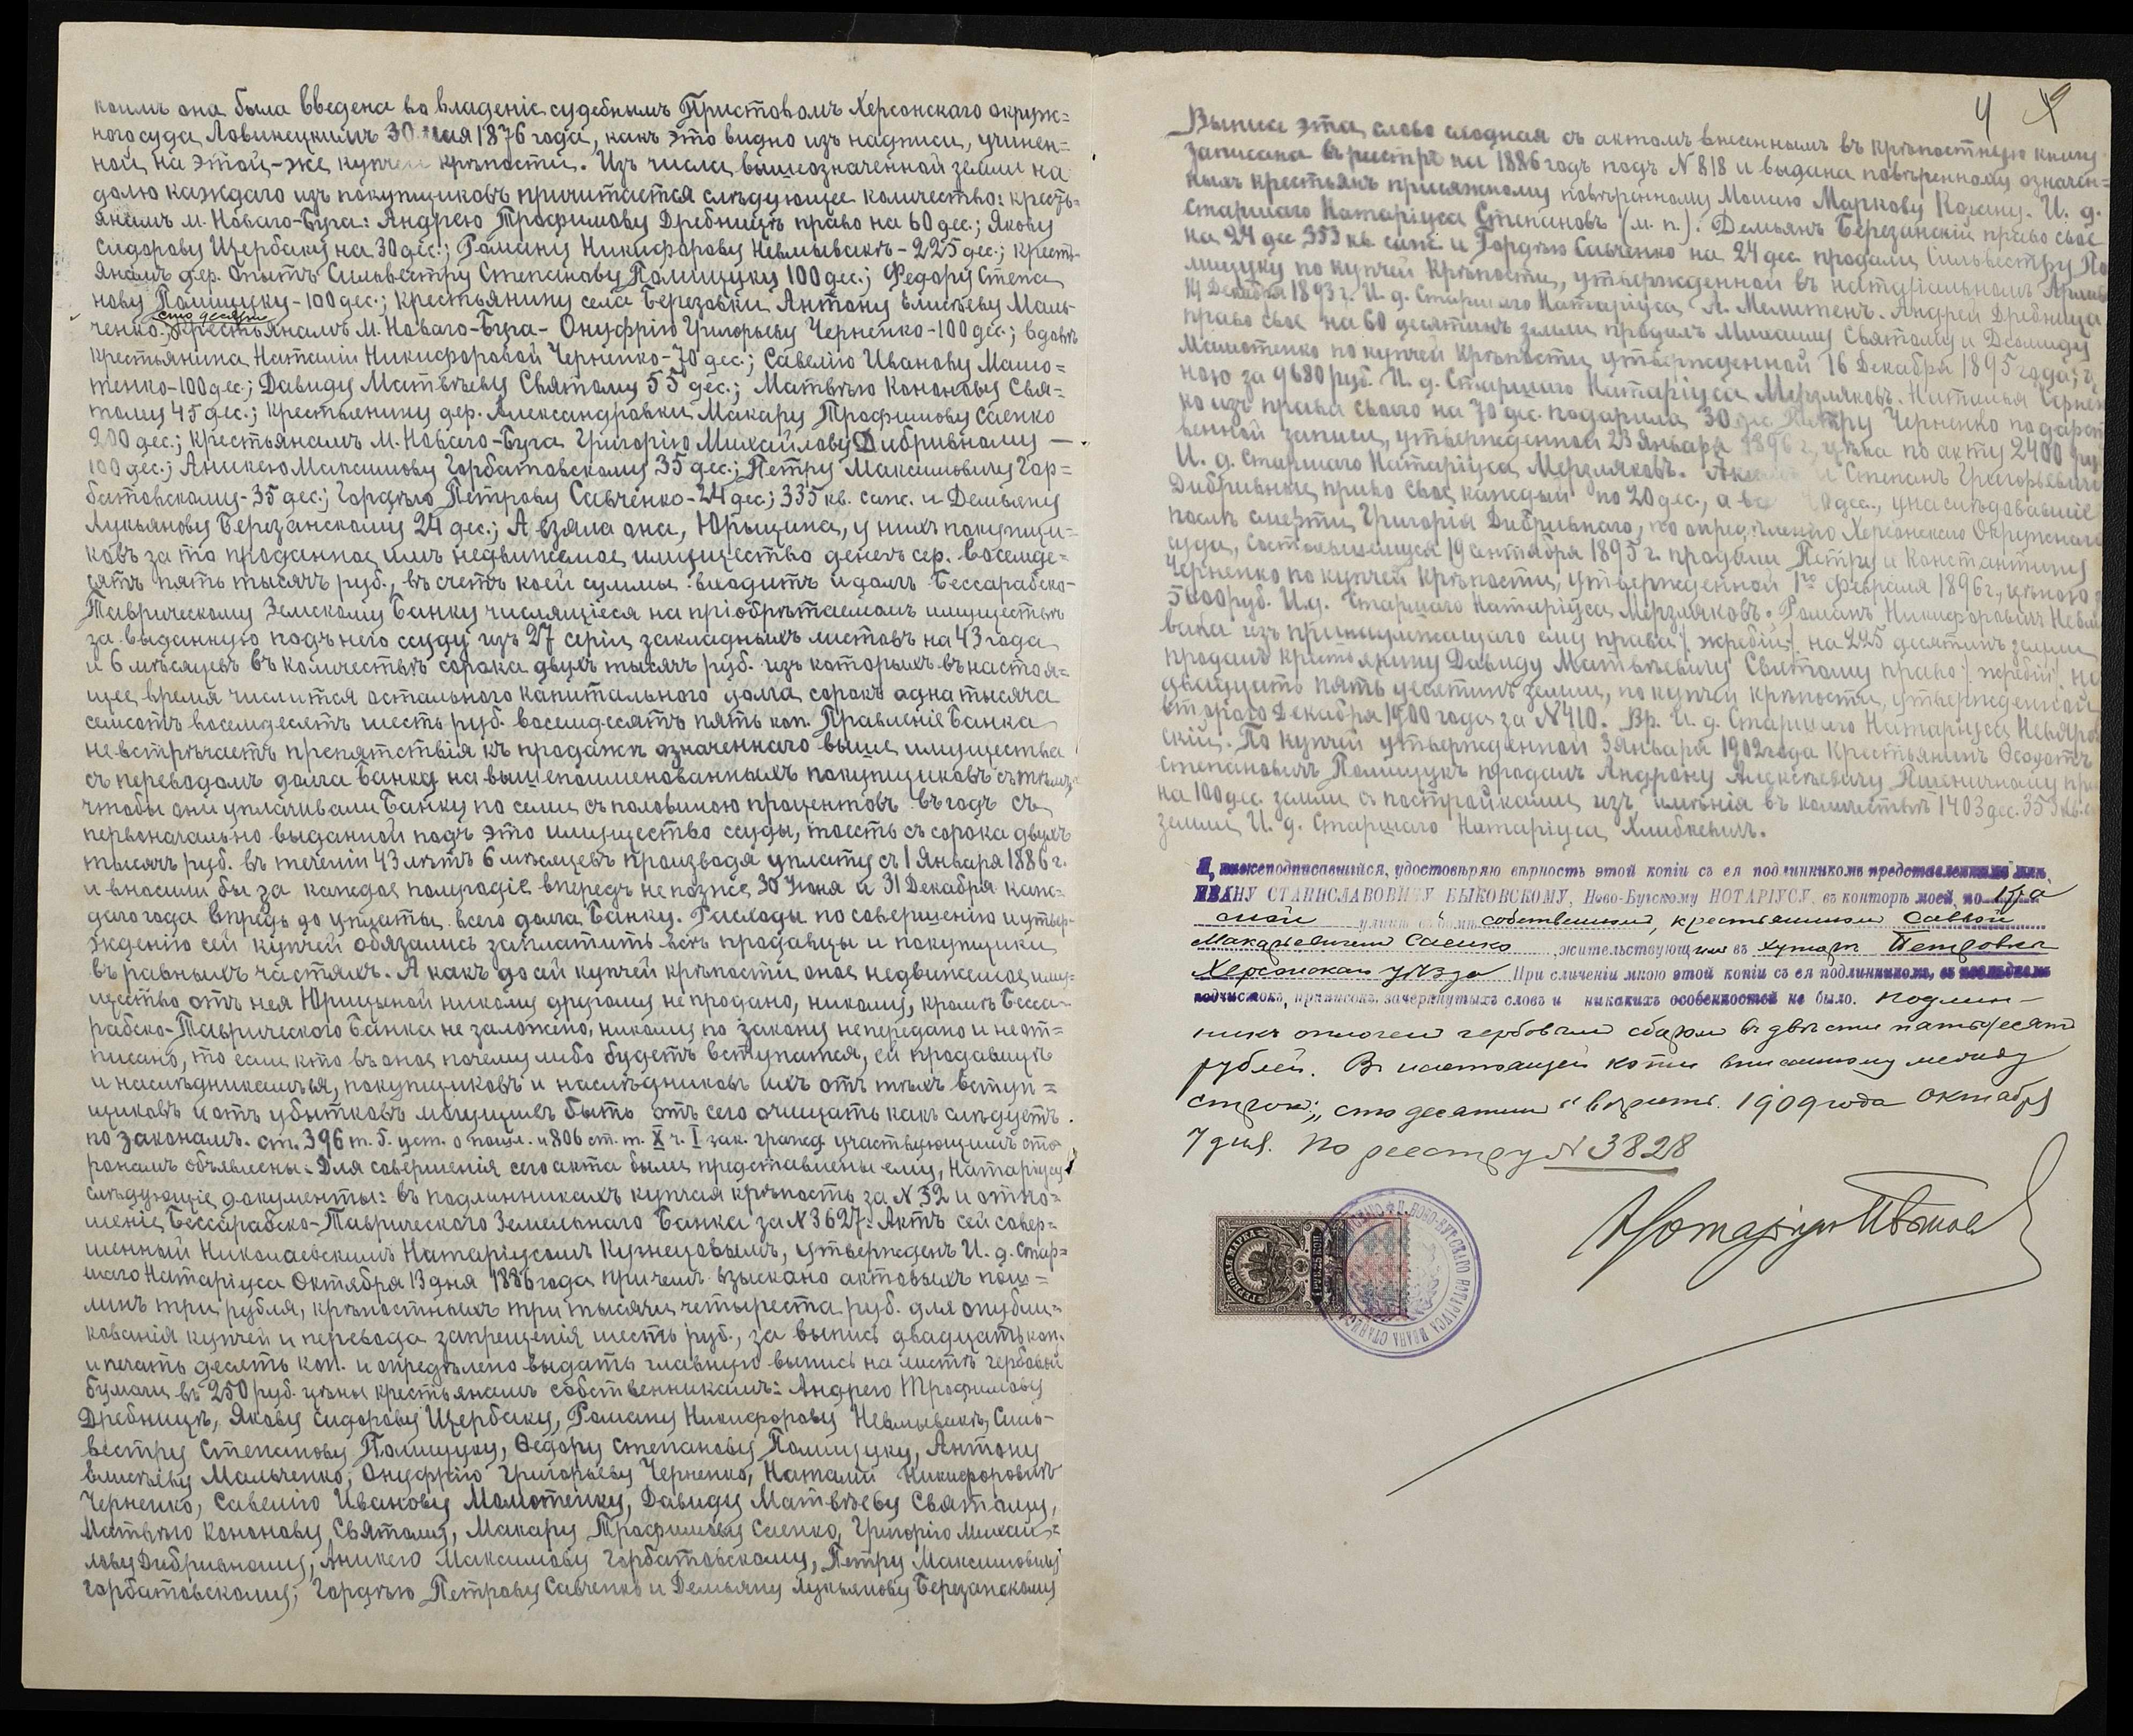 коимъ она была введена во владеніе судебнымъ Приставомъ Херсонскаго окруж=
наго суда Ловинецкимъ 30 мая 1876 года, какъ это видно изъ надписи, учинен=
ной на этой-же купчей крѣпости. Изъ числа вышеозначенной земли на
долю каждаго изъ покупщиковъ причитается слѣдующее количество: кресть=
янамъ м. Новаго-Буга: Андрею Трофимову Дребницѣ право на 60 дес.; Якову
Сидорову Щербаку на 30 дес.; Роману Никифорову Невмывакѣ - 225 дес.; крест-
янамъ дер. Опытъ Сильвестру Степанову Полищуку 100 дес.; Федору Степа
нову Полищуку - 100 дес.; крестьянину села Березовки Антону Елисѣеву Маль-
сто десят.
ченко; крестьянамъ м. Новаго-Буга - Онуфрію Григорьеву Черненко - 100 дес.; вдовѣ
крестьянина Наталіи Никифоровой Черненко - 70 дес.; Савелію Иванову Мамо=
тенко - 100 дес.; Давиду Матвѣеву Святому 55 дес.; Матвѣю Кононову Свя=
тому 45 дес.; крестьянину дер. Александровки Макару Трофимову Саенко
200 дес.; крестьянамъ м. Новаго-Буга Григорію Михайлову Дибривному —
100 дес.; Аникею Максимову Горбатовскому 35 дес.; Петру Максимовичу Гор=
батовскому - 35 дес.; Гордѣю Петрову Савченко - 24 дес.; 335 кв. саж. и Демьяну
Лукьянову Березанскому 24 дес.; А взяла она, Юрьицина, у нихъ покупщи-
ковъ за то проданное имъ недвижимое имущество денегъ сер. восемьде=
сятъ пять тысячъ руб., въ счетъ коей суммы входитъ и долгъ Бессарабско-
Таврическому Земскому Банку числящіеся на пріобрѣтаемомъ имуществѣ
за выданную подъ него ссуду изъ 27 серіи закладныхъ листовъ на 43 года
и 6 мѣсяцевъ въ количествѣ сорока двухъ тысячъ руб. изъ которыхъ въ настоя=
щее время числится остального капитального долга сорокъ одна тысяча
семсотъ восемдесятъ шесть руб. восемдесятъ пять коп. Правленіе Банка
не встрѣчаетъ препятствія къ продажѣ означеннаго выше имущества
съ переводомъ долга Банку на вышепоименованныхъ покупщиковъ съ тѣмъ,
чтобы они уплачивали Банку по семи съ половиною процентовъ въ годъ съ
первоначально выданной подъ это имущество ссуды, тоесть съ сорока двухъ
тысячъ руб. въ теченіи 43 лѣтъ 6 мѣсяцевъ производя уплату съ 1 Января 1886 г.
и вносили бы за каждое полугодіе впередъ не позже 30 Іюня и 31 Декабря каж=
даго года впредь до уплаты всего долга Банку. Расходы по совершенію и утвер-
жденію сей купчей обязались заплатить всѣ продавцы и покупщики
въ равныхъ частяхъ. А какъ до сей купчей крѣпости оное недвижимое иму=
щество отъ нея Юрицыной никому другому не продано, никому, кромѣ Бесса-
рабско-Таврическаго Банка не заложено, никому по закону не передано и не от=
писано, то если кто въ оное почему либо будетъ вступатся, ей продавицѣ
и наслѣдникамъ ея, покупщиковъ и наслѣдниковъ ихъ отъ тѣхъ вступ=
щиковъ и отъ убытковъ могущихъ быть отъ сего очищать какъ слѣдуетъ
по законамъ. ст. 396 т. 5. уст. о пошл. и 806 ст. т. X ч. I зак. гражд. участвующимъ сто=
ронамъ объявлены. Для совершенія сего акта были представлены ему, Натаріусу
слѣдующіе документы: въ подлинникахъ купчая крѣпость за №32 и отно=
шеніе Бессарабско-Таврическаго Земельнаго Банка за №3627: Актъ сей совер=
шенный Николаевскимъ Натаріусомъ Кузнецовымъ, утвержденъ И. д. стар=
шаго Натаріуса Октября 13 дня 1886 года причемъ взыскано актовыхъ пош=
линъ три рубля, крѣпостныхъ три тысячи четыреста руб. для опубли=
кованія купчей и перевода запрещенія шесть руб., за выпись двадцать коп.
и печать десять коп. и опредѣлено выдать главную выпись на листѣ гербовой
бумаги въ 250 руб. цѣны крестьянамъ собственникамъ: Андрею Трофимову
Дребницѣ, Якову Сидорову Щербаку, Роману Никифорову Невмывакѣ, Силь-
вестру Степанову Полищуку, Ѳедору Степанову Полищуку, Антону
Елисѣеву Мальченко, Онуфрію Григорьеву Черненко, Наталіи Никифоровнѣ
Черненко, Савелію Иванову Мамотенку, Давиду Матвѣеву Святому,
Матвѣю Кононову Святому, Макару Трофимову Саенко, Григорію Михай=
лову Дибривному, Аникею Максимову Горбатовскому, Петру Максимовичу
Горбатовскому, Гордѣю Петрову Савченко и Демьяну Лукьянову Березанскому
4
Выпись эта, слово сходная съ актомъ внесеннымъ въ крѣпостную книгу
записана въ реестрѣ на 1886 годъ подъ №818 и выдана повѣренному означен=
ныхъ крестьянъ присяжному повѣренному Моисею Маркову Когану. И. д.
Старшаго Натаріуса Степановъ (м. п.). Демьянъ Березанскій право свое
на 24 дес 353 кв. саж. и Гордѣю Савченко на 24 дес продали Сильвестру По
лищуку по купчей крѣпости, утвержденной въ натаріальномъ Архивѣ
14 Декабря 1893 г. И. д. Старшаго Натаріуса А. Мелитенъ. Андрей Дребница
право свое на 60 десятинъ земли продалъ Михаилу Святому и Диомиду
Мамотенко по купчей крѣпости утвержденной 16 Декабря 1895 года, цѣ
ною за 9680 руб. И. д. Старшаго Натаріуса Мерзляковъ. Наталья Чернен
ко изъ права своего на 70 дес. подарила 30 дес Петру Черненко по дарст
венной записи, утвержденной 23 Января 1896 г, цѣна по акту 2400 ру
И. д. Старшаго Натаріуса Мерзляковъ. и Степанъ Григорьевичи
Дибривные право свое каждый по 20 дес., а дес., унаслѣдовавшіе
послѣ смерти Григорія Дибривнаго, по опредѣленію Херсонскаго Окружнаго
суда, состоявшемуся 19 сентября 1895 г. продали Петру и Константину
Черненко по купчей крѣпости, утвержденной 1го Февраля 1896 г., цѣною з
5600 руб. И. д. Старшаго Натаріуса Мерзляковъ. Романъ Никифоровичъ Невмы
вака изъ принадлежащаго ему права /: жребій :/ на 225 десятинъ земли
продалъ крестьянину Давиду Матвѣевичу Святому право /: жребій :/ на
двадцать пять десятинъ земли, по купчей крѣпости, утвержденной
второго Декабря 1900 года за №410. Вр. И. д. Старшаго Натаріуса Невяров
скій. По купчей утвержденной 3 Января 1902 года крестьянинъ Ѳеодотъ
Степановичъ Полищукъ продалъ Андрону Алексѣевичу Пшеничному пра
на 100 дес. земли съ постройками, изъ имѣнія въ количествѣ 1403 дес. 353 кв. с
земли, И. д. Старшаго Натаріуса Хлибкевичъ.
Я, нижеподписавшійся, удостовѣряю вѣрность этой копіи съ ея подлинникомъ представленнымъ мнѣ,
ИВАНУ СТАНИСЛАВОВИЧУ БЫКОВСКОМУ, Ново-Бугскому НОТАРІУСУ, въ конторѣ моей, по Куза
ской улицѣ въ домѣ собственномъ, крестьяниномъ Саввой
Макарьевичемъ Саенко, жительствующимъ въ хуторѣ Петровкѣ
Херсонскаго уѣзда При сличеніи мною этой копіи съ ея подлинникомъ, въ послѣднемъ
подчистокъ, приписокъ, зачеркнутыхъ словъ и никакихъ особенностей не было. Подлин-
никъ оплоченъ гербовымъ сборомъ въ двѣсти пятьдесятъ
рублей. Въ настоящей копіи вписанному между
строкъ: „сто десятинъ" вѣрить. 1909 года Октября
7 дня. По реестру №3828
Нотаріусъ
ГЕРБОВАЯ МАРКА